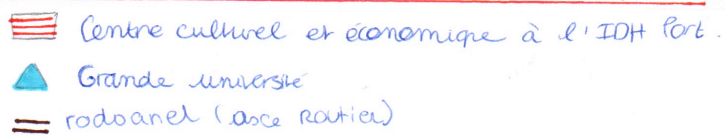 Centre culturel et économique à l'IDH fort.
Grande université
rodoanel (axe Routier)